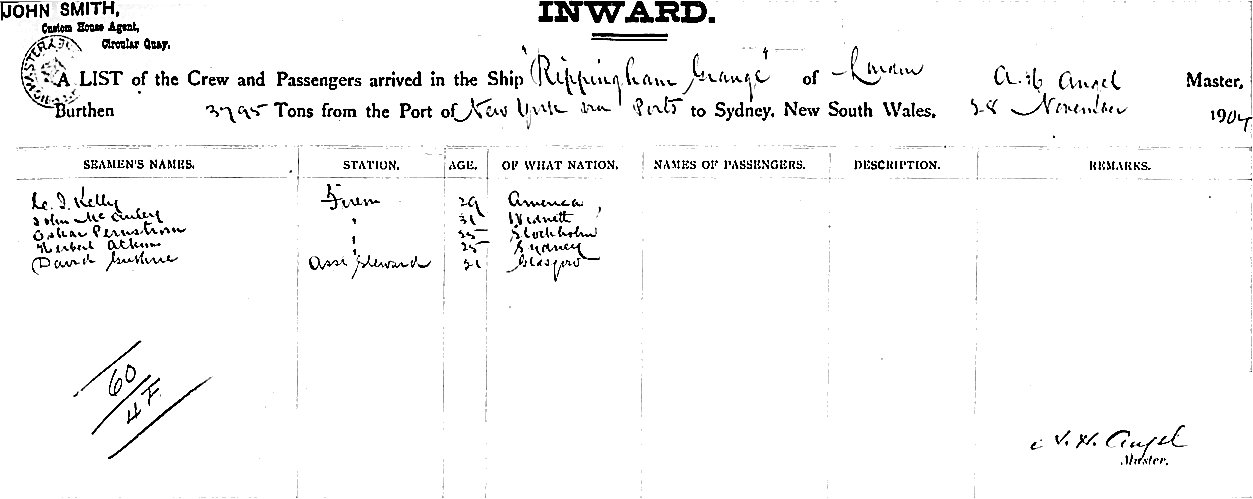 JOHN SMITH,
Custom House Agent,
Circular Quay.
INWARD.
A LIST of the Crew and Passengers arrived in the Ship "Rippingham Grange" of London A. H. Angel Master,
Burthen 3795 Tons from the Port of New York via Ports to Sydney, New South Wales, 28 November 1904
SEAMEN'S NAMES. STATION. AGE. OF WHAT NATION. NAMES OF PASSENGERS. DESCRIPTION. REMARKS.
Kelly Firem 29 America
John McAuley " 31
Oskar Pernstrom " 25 Stockholm
Herbert Atkins " 25 Sydney
David Guthrie Asst Steward 21 Glasgow
60
4 F
H. Angel
Master.